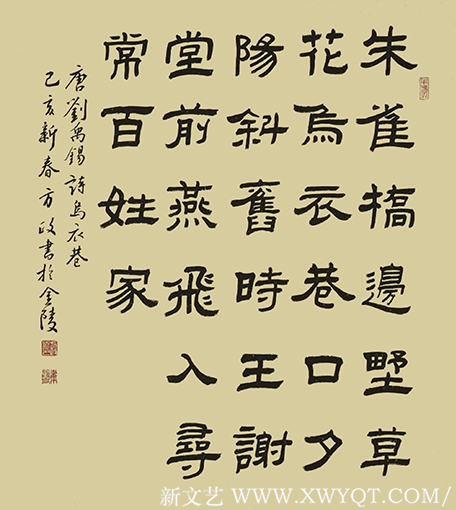 朱雀橋邊野草
花烏衣巷口夕
陽斜舊時王謝
堂前燕飛入尋
常百姓家
唐劉禹錫詩烏衣巷
己亥新春方政書於金陵
新文艺 WWW.XWYQT.COM/